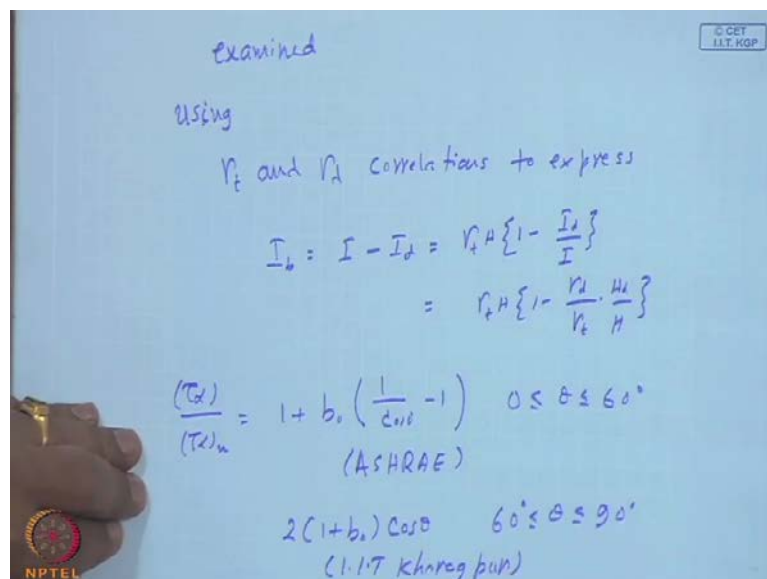 examined
© CET
I.I.T. KGP
Using
r_t and r_d correlations to express
I_b = I - I_d = r_t H {1 - I_d/I}
= r_t H {1 - r_d/r_t · H_d/H}
(τα)/(τα)_n = 1 + b_0 (1/cosθ - 1) 0 ≤ θ ≤ 60°
(ASHRAE)
2(1+b_0) Cosθ 60° ≤ θ ≤ 90°
(I.I.T Kharagpur)
NPTEL